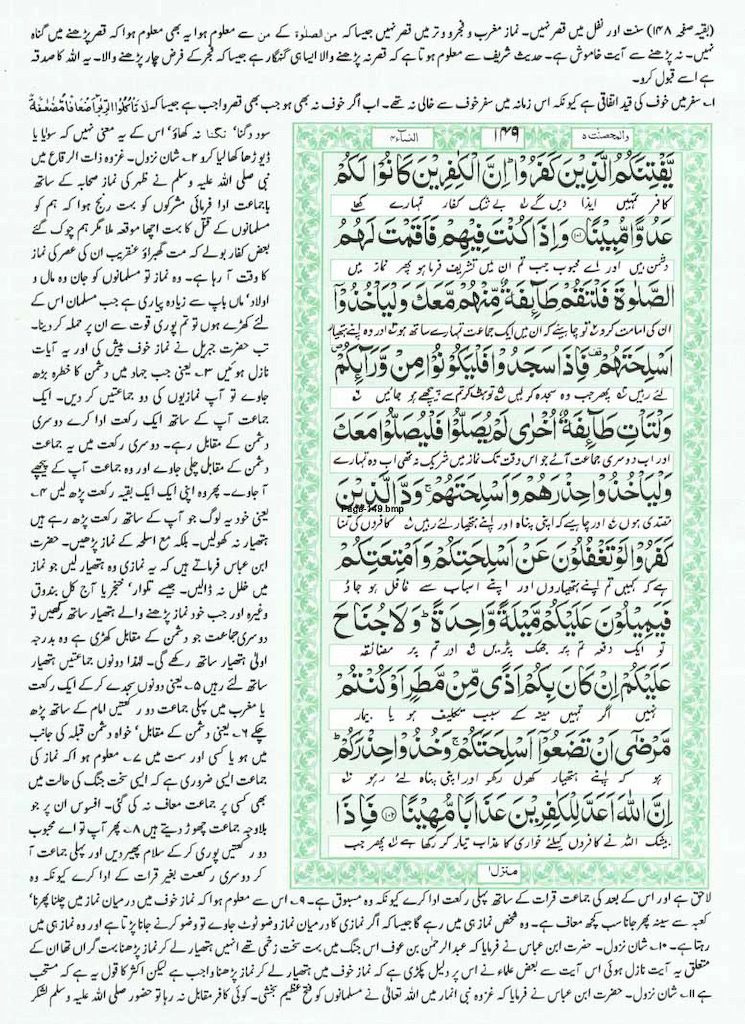 (بقیہ صفحہ ۱۴۸) سنت اور نفل میں قصر نہیں۔ نماز مغرب و فجر و وتر میں قصر نہیں جیسا کہ من الصلوۃ کے من سے معلوم ہوا یہ بھی معلوم ہوا کہ قصر پڑھنے میں گناہ
نہیں۔ نہ پڑھنے سے آیت خاموش ہے۔ حدیث شریف سے معلوم ہوتا ہے کہ قصر نہ پڑھنے والا ایسا ہی گنہگار ہے جیسا کہ فجر کے فرض چار پڑھنے والا۔ یہ اللہ کا صدقہ
ہے اسے قبول کرو۔
۱۔ سفر میں خوف کی قید اتفاقی ہے کیونکہ اس زمانہ میں سفر خوف سے خالی نہ تھے۔ اب اگر خوف نہ بھی ہو جب بھی قصر واجب ہے جیسا کہ لَا تَاْكُلُوا الرِّبٰوا اَضْعَافًا مُّضٰعَفَةً
سود دگنا' تگنا نہ کھاؤ' اس کے یہ معنی نہیں کہ سوایا یا
ڈیوڑھا کھا لیا کرو ۲۔ شان نزول۔ غزوہ ذات الرقاع میں
نبی صلی اللہ علیہ وسلم نے ظہر کی نماز صحابہ کے ساتھ
باجماعت ادا فرمائی مشرکوں کو بہت رنج ہوا کہ ہم کو
مسلمانوں کے قتل کا بہت اچھا موقعہ ملا مگر ہم چوک گئے
بعض کفار بولے کہ مت گھبراؤ عنقریب ان کی عصر کی نماز
کا وقت آ رہا ہے۔ وہ نماز تو مسلمانوں کو جان و مال و
اولاد' ماں باپ سے زیادہ پیاری ہے جب مسلمان اس کے
لئے کھڑے ہوں تو تم پوری قوت سے ان پر حملہ کر دینا۔
تب حضرت جبریل نے نماز خوف پیش کی اور یہ آیات
نازل ہوئیں ۳۔ یعنی جب جہاد میں دشمن کا خطرہ بڑھ
جاوے تو آپ نمازیوں کی دو جماعتیں کر دیں۔ ایک
جماعت آپ کے ساتھ ایک رکعت ادا کرے دوسری
دشمن کے مقابل رہے۔ دوسری رکعت میں یہ جماعت
دشمن کے مقابل چلی جاوے اور وہ جماعت آپ کے پیچھے
آ جاوے۔ پھر وہ اپنی ایک ایک بقیہ رکعت پڑھ لیں ۴۔
یعنی خود یہ لوگ جو آپ کے ساتھ رکعت پڑھ رہے ہیں
ہتھیار نہ کھولیں۔ بلکہ مع اسلحہ کے نماز پڑھیں۔ حضرت
ابن عباس فرماتے ہیں کہ یہ نمازی وہ ہتھیار لیں جو نماز
میں خلل نہ ڈالیں۔ جیسے تلوار' خنجر یا آج کل بندوق
وغیرہ اور جب خود نماز پڑھنے والے ہتھیار ساتھ رکھیں تو
دوسری جماعت جو دشمن کے مقابل کھڑی ہے وہ بدرجہ
اولیٰ ہتھیار ساتھ رکھے گی۔ لہذا دونوں جماعتیں ہتھیار
ساتھ لئے رہیں ۵۔ یعنی دونوں سجدے کر کے ایک رکعت
یا مغرب میں پہلی جماعت دو رکعتیں امام کے ساتھ پڑھ
چکے ۶۔ یعنی دشمن کے مقابل' خواہ دشمن قبلہ کی جانب
میں ہو یا کسی اور سمت میں ۷۔ معلوم ہوا کہ نماز کی
جماعت ایسی ضروری ہے کہ ایسی سخت جنگ کی حالت میں
بھی کسی پر جماعت معاف نہ کی گئی۔ افسوس ان پر جو
بلاوجہ جماعت چھوڑ دیتے ہیں ۸۔ پھر آپ تو اے محبوب
دو رکعتیں پوری کر کے سلام پھیر دیں اور پہلی جماعت آ
کر دوسری رکعت بغیر قرات کے ادا کرے کیونکہ وہ
والمحصنٰت ۵ ۱۴۹ النساء ۴
يَّفْتِنَكُمُ الَّذِيْنَ كَفَرُوْا ؕ اِنَّ الْكٰفِرِيْنَ كَانُوْا لَكُمْ
کافر تمہیں ایذا دیں گے بے شک کفار تمہارے کھلے
عَدُوًّا مُّبِيْنًا ﴿۱۰۱﴾ وَاِذَا كُنْتَ فِيْهِمْ فَاَقَمْتَ لَهُمُ
دشمن ہیں اور اے محبوب جب تم ان میں تشریف فرما ہو پھر نماز میں
الصَّلٰوةَ فَلْتَقُمْ طَآئِفَةٌ مِّنْهُمْ مَّعَكَ وَلْيَاْخُذُوْٓا
ان کی امامت کرو تو چاہیئے کہ ان میں ایک جماعت تمہارے ساتھ ہو اور وہ اپنے ہتھیار
اَسْلِحَتَهُمْ ۫ فَاِذَا سَجَدُوْا فَلْيَكُوْنُوْا مِنْ وَّرَآئِكُمْ ۪
لئے رہیں پھر جب وہ سجدہ کر لیں تو ہٹ کر تم سے پیچھے ہو جائیں
وَلْتَاْتِ طَآئِفَةٌ اُخْرٰى لَمْ يُصَلُّوْا فَلْيُصَلُّوْا مَعَكَ
اور اب دوسری جماعت آئے جو اس وقت تک نماز میں شریک نہ تھی اب وہ تمہارے
وَلْيَاْخُذُوْا حِذْرَهُمْ وَاَسْلِحَتَهُمْ ۚ وَدَّ الَّذِيْنَ
Page-149.bmp
مقتدی ہوں اور چاہیے کہ اپنی پناہ اور اپنے ہتھیار لئے رہیں کافروں کی تمنا
كَفَرُوْا لَوْ تَغْفُلُوْنَ عَنْ اَسْلِحَتِكُمْ وَاَمْتِعَتِكُمْ
ہے کہ کہیں تم اپنے ہتھیاروں اور اپنے اسباب سے غافل ہو جاؤ
فَيَمِيْلُوْنَ عَلَيْكُمْ مَّيْلَةً وَّاحِدَةً ؕ وَلَا جُنَاحَ
تو ایک دفعہ تم پر جھک پڑیں اور تم پر مضائقہ
عَلَيْكُمْ اِنْ كَانَ بِكُمْ اَذًى مِّنْ مَّطَرٍ اَوْ كُنْتُمْ
نہیں اگر تمہیں مینہ کے سبب تکلیف ہو یا بیمار
مَّرْضٰٓى اَنْ تَضَعُوْٓا اَسْلِحَتَكُمْ ۚ وَخُذُوْا حِذْرَكُمْ ؕ
ہو کہ اپنے ہتھیار کھول رکھو اور اپنی پناہ لئے رہو
اِنَّ اللّٰهَ اَعَدَّ لِلْكٰفِرِيْنَ عَذَابًا مُّهِيْنًا ﴿۱۰۲﴾ فَاِذَا
بیشک اللہ نے کافروں کیلئے خواری کا عذاب تیار کر رکھا ہے پھر جب
منزل ۱
لاحق ہے اور اس کے بعد کی جماعت قرات کے ساتھ پہلی رکعت ادا کرے کیونکہ وہ مسبوق ہے۔ ۹۔ اس سے معلوم ہوا کہ نماز خوف میں درمیان نماز میں چلنا پھرنا'
کعبہ سے سینہ پھر جانا سب کچھ معاف ہے۔ وہ شخص نماز ہی میں رہے گا جیسا کہ اگر نمازی کا درمیان نماز وضو ٹوٹ جاوے تو وضو کرنے جانا پڑتا ہے اور وہ نماز ہی میں
رہتا ہے۔ ۱۰۔ شان نزول۔ حضرت ابن عباس نے فرمایا کہ عبد الرحمٰن بن عوف اس جنگ میں بہت سخت زخمی تھے انہیں ہتھیار لے کر نماز پڑھنا بہت گراں تھا ان کے
متعلق یہ آیت نازل ہوئی اس آیت سے بعض علماء نے اس پر دلیل پکڑی ہے کہ نماز خوف میں ہتھیار لے کر نماز پڑھنا واجب ہے لیکن اکثر کا قول یہ ہے کہ مستحب
ہے ۱۱۔ شان نزول۔ حضرت ابن عباس نے فرمایا کہ غزوہ بنی انمار میں اللہ تعالیٰ نے مسلمانوں کو فتح عظیم بخشی۔ کوئی کافر مقابل نہ رہا تو حضور صلی اللہ علیہ وسلم لشکر